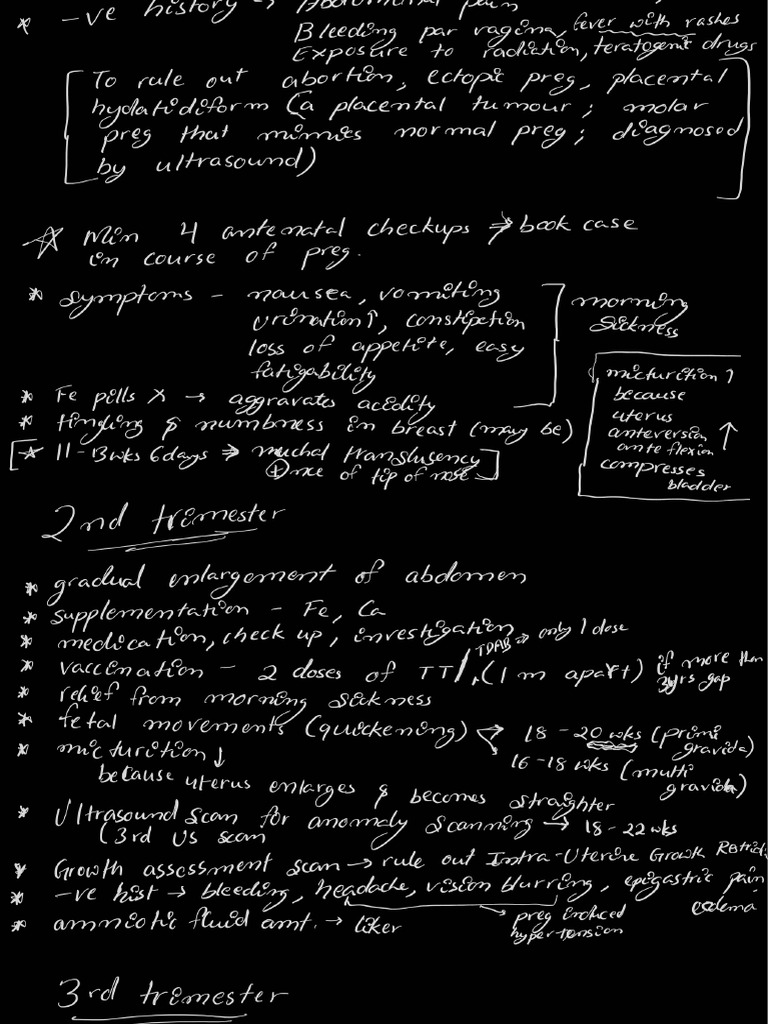 * -ve history → Abdominal pain
Bleeding par vagina, fever with rashes
Exposure to radiation, teratogenic drugs
[To rule out abortion, ectopic preg, placental
hydatidiform (a placental tumour; molar
preg that mimics normal preg; diagnosed
by ultrasound)]
☆ Min 4 antenatal checkups → book case
in course of preg.
* Symptoms - nausea, vomiting
urination↑, constipation
loss of appetite, easy
fatigability
morning
sickness
* Fe pills x → aggravates acidity
* tingling & numbness in breast (may be)
[☆ 11-13wks 6days ⇒ nuchal translusency
⊕nce of tip of nose]
micturition ↑
because
uterus
anteversion ↑
ante flexion
compresses
bladder
2nd trimester
* gradual enlargement of abdomen
* supplementation - Fe, Ca
* medication, check up, investigation
* vaccination - 2 doses of TT/, (1 m apart) if more than
3yrs gap
TDAB → only 1 dose
* relief from morning sickness
* fetal movements (quickening) < 18-20 wks (primi
gravida)
16-18 wks (multi
gravida)
* micturition ↓
because uterus enlarges & becomes straighter
* Ultrasound scan for anomaly scanning → 18-22wks
(3rd US scan
* Growth assessment scan → rule out Intra-Uterine Growth Restric
* -ve hist → bleeding, headache, vision blurring, epigastric pain
edema
→ preg induced
hypertension
* amniotic fluid amt. → liker
3rd trimester